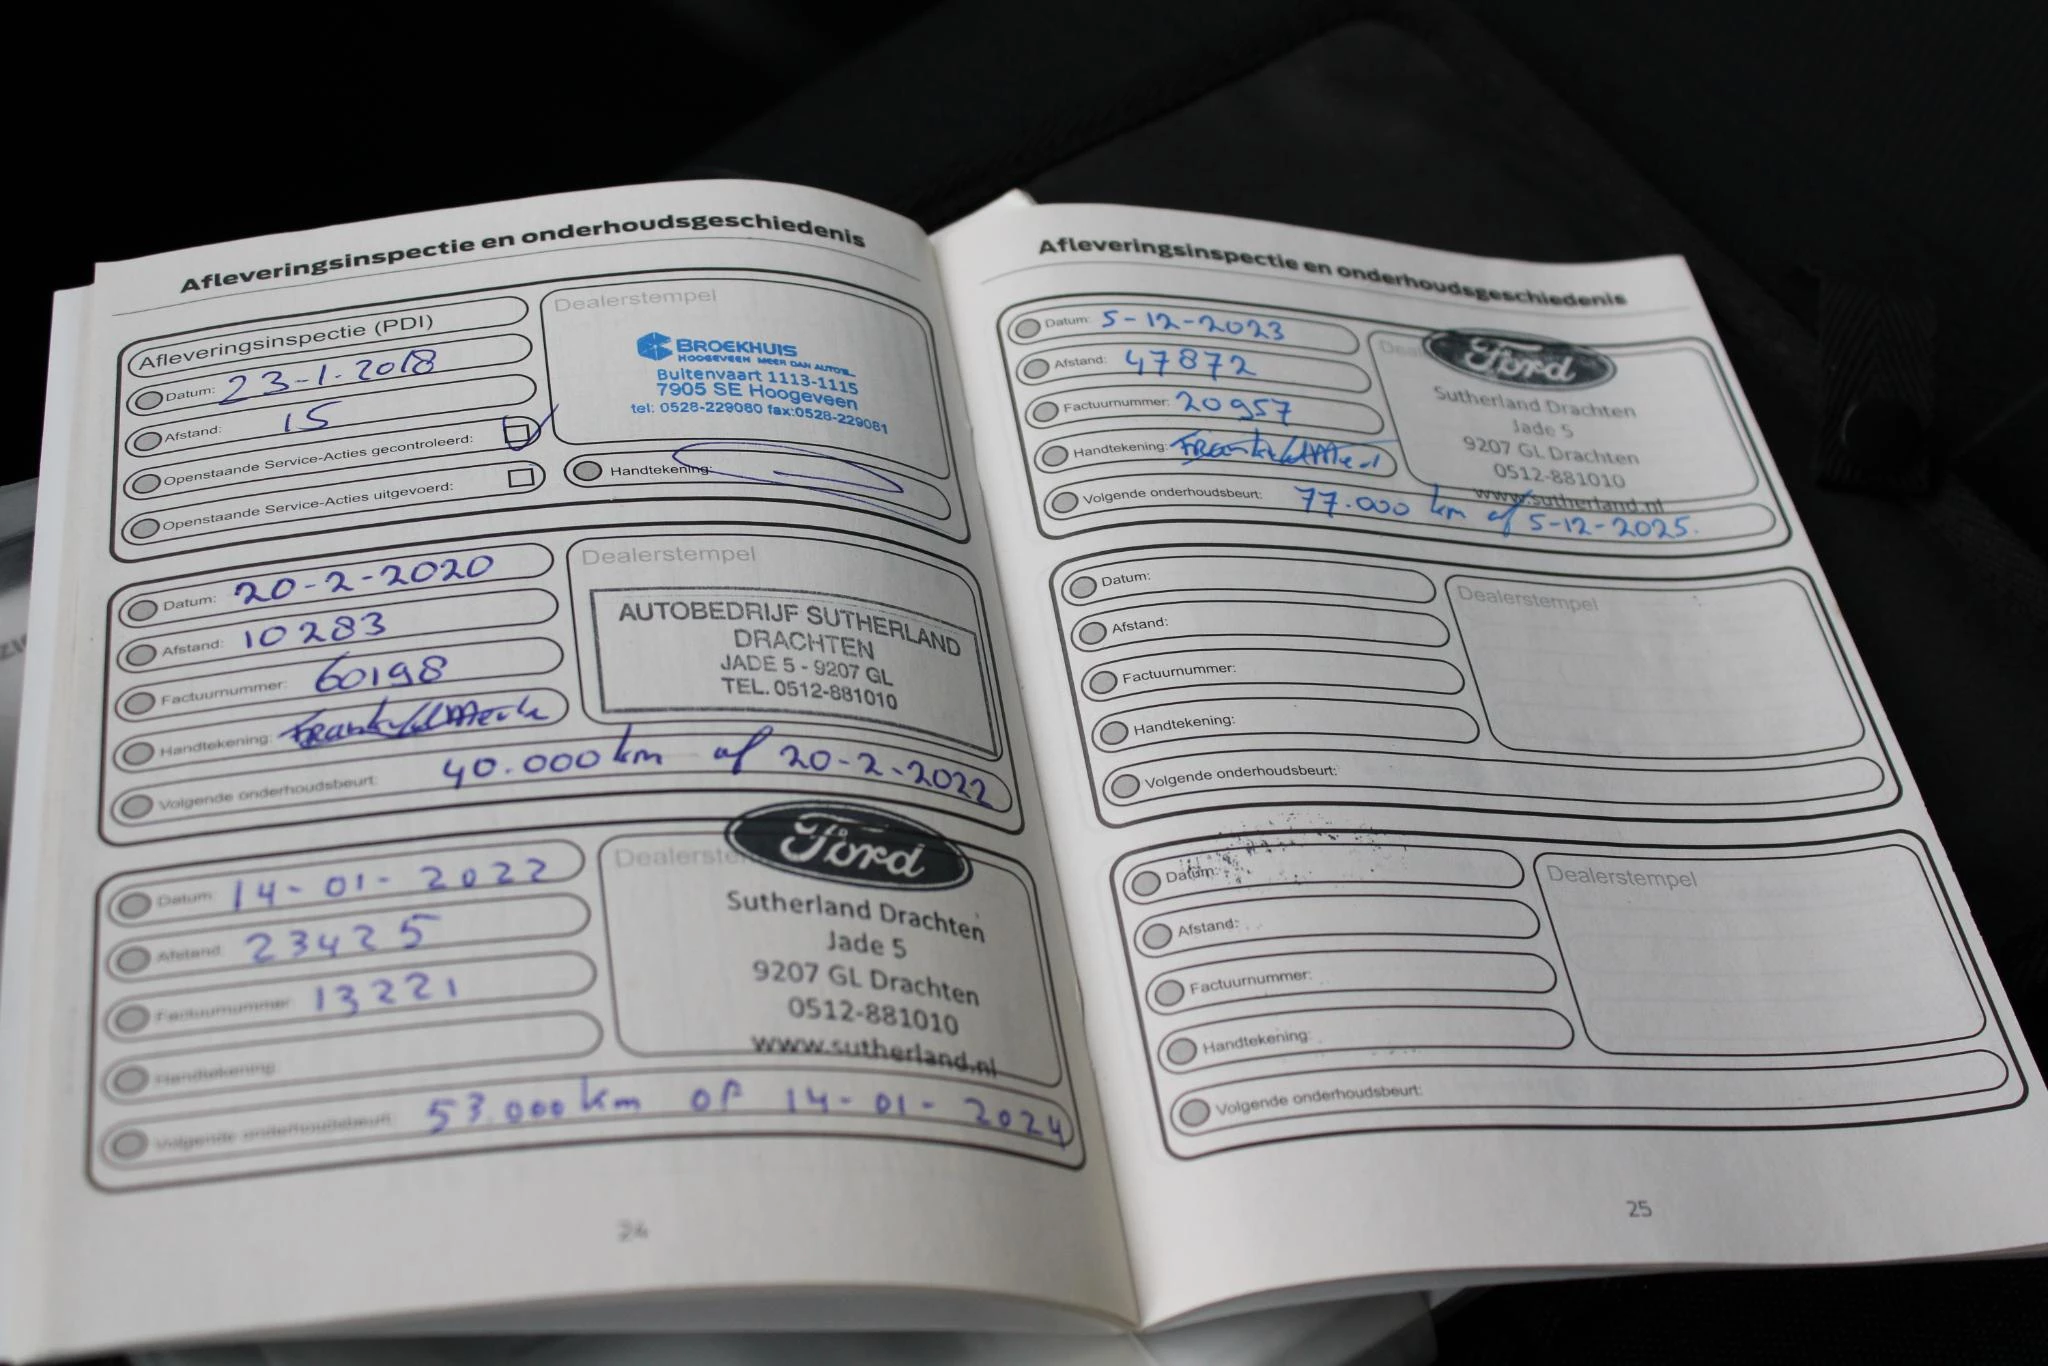 Afleveringsinspectie en onderhoudsgeschiedenis
Afleveringsinspectie (PDI)
Datum: 23-1-2018
Afstand: 15
Openstaande Service-Acties gecontroleerd:
Openstaande Service-Acties uitgevoerd:
Dealerstempel
BROEKHUIS
HOOGEVEEN MEER DAN AUTO'S...
Buitenvaart 1113-1115
7905 SE Hoogeveen
tel: 0528-229080 fax:0528-229081
Handtekening:
Datum: 20-2-2020
Afstand: 10283
Factuurnummer: 60198
Handtekening:
Volgende onderhoudsbeurt: 40.000 km of 20-2-2022
Dealerstempel
AUTOBEDRIJF SUTHERLAND
DRACHTEN
JADE 5 - 9207 GL
TEL. 0512-881010
Datum: 14-01-2022
Afstand: 23425
Factuurnummer: 13221
Handtekening:
Volgende onderhoudsbeurt: 53.000 km OF 14-01-2024
Ford
Sutherland Drachten
Jade 5
9207 GL Drachten
0512-881010
www.sutherland.nl
24
Afleveringsinspectie en onderhoudsgeschiedenis
Datum: 5-12-2023
Afstand: 47872
Factuurnummer: 20957
Handtekening:
Volgende onderhoudsbeurt: 77.000 km of 5-12-2025.
Ford
Sutherland Drachten
Jade 5
9207 GL Drachten
0512-881010
www.sutherland.nl
Datum:
Afstand:
Factuurnummer:
Handtekening:
Volgende onderhoudsbeurt:
Dealerstempel
Datum:
Afstand:
Factuurnummer:
Handtekening:
Volgende onderhoudsbeurt:
Dealerstempel
25